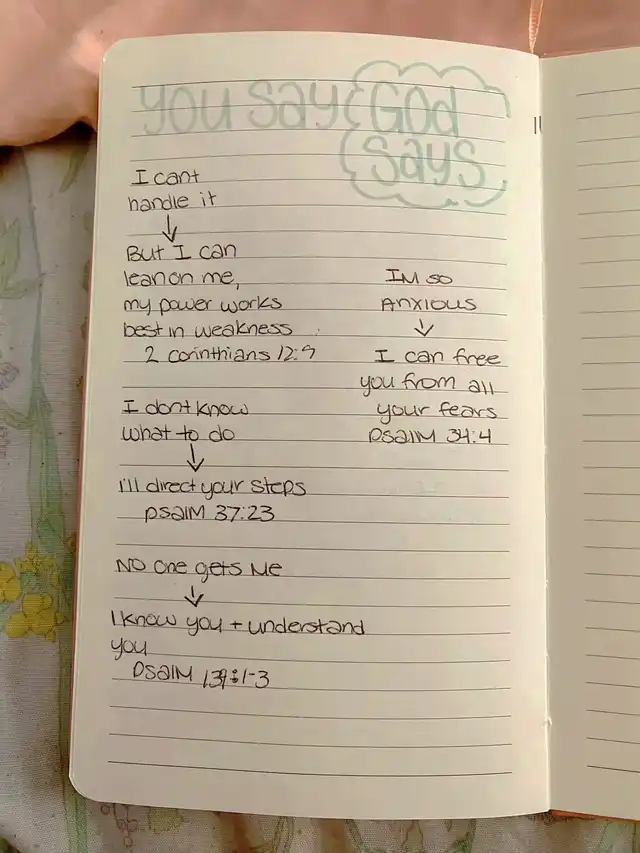 You say & God
says
I cant
handle it
But I can
lean on me,
my power works
best in weakness
2 corinthians 12:9
I dont know
what to do
I'll direct your steps
psalm 37:23
No one gets me
I know you + understand
you
psalm 139:1-3
Im so
anxious
I can free
you from all
your fears
psalm 34:4